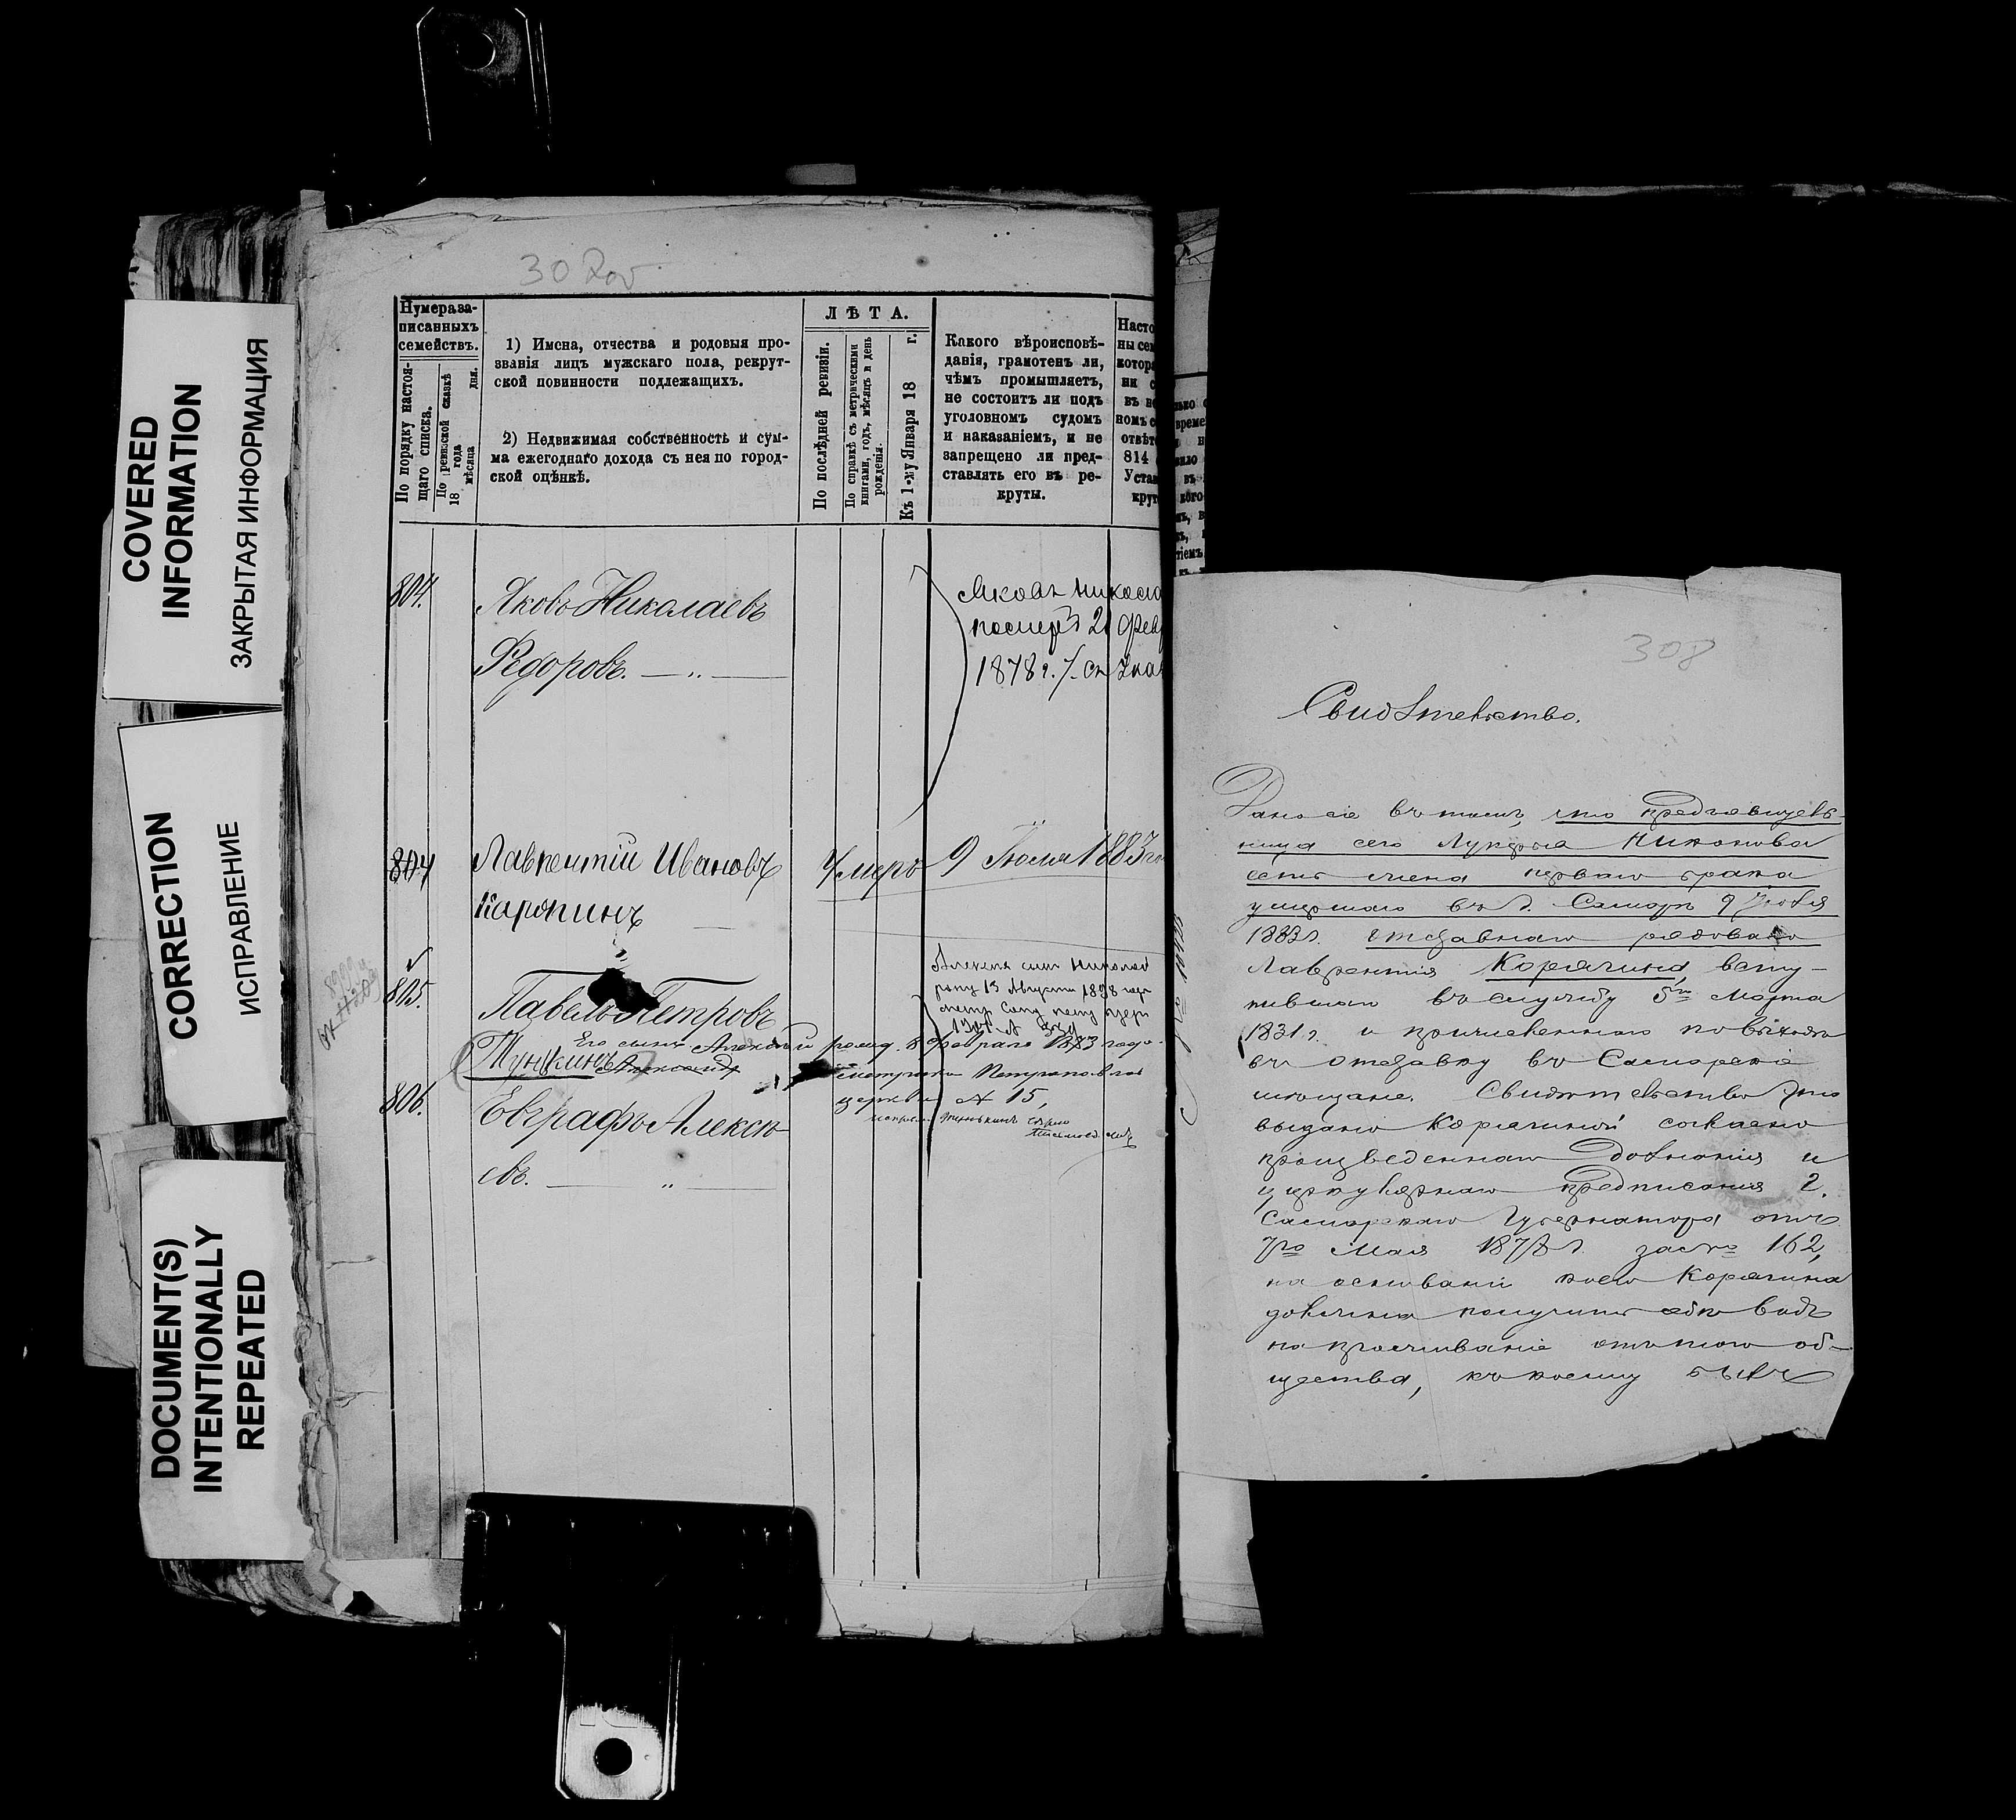 COVERED
INFORMATION
ЗАКРЫТАЯ ИНФОРМАЦИЯ
CORRECTION
ИСПРАВЛЕНИЕ
DOCUMENT(S)
INTENTIONALLY
REPEATED
30
Нумера за-
писанныхъ
семействъ.
По порядку настоя-
щаго списка.
По ревизской сказкѣ
18 года
мѣсяца дня.
1) Имена, отчества и родовыя про-
званія лицъ мужскаго пола, рекрут-
ской повинности подлежащихъ.
2) Недвижимая собственность и сум-
ма ежегоднаго дохода съ нея по город-
ской оцѣнкѣ.
ЛѢТА.
По послѣдней ревизіи.
По справкѣ съ метрическими
книгами, годъ, мѣсяцъ и день
рожденія.
Къ 1-му Января 18 г.
Какого вѣроисповѣ-
данія, грамотенъ ли,
чѣмъ промышляетъ,
не состоитъ ли подъ
уголовномъ судомъ
и наказаніемъ, и не
запрещено ли пред-
ставлять его въ ре-
круты.
Насто
ны сем
котор
ни с
въ н
номъ с
отвѣт
814
Уста
крут
804.
Яковъ Николаевъ
Ѳедоровъ.
Яковъ Никола
21 Фев
1878 г.
804
Лаврентій Ивановъ
Карякинъ
Умеръ 9 Іюля 1883
805.
Павелъ Петровъ
Тункинъ
Его сынъ Алексѣй рожд. 8 Февраля 1873 года
Александръ
метрика Петропавлов
церкви № 15,
Николай
13 Августа
806.
Евграфъ Алексѣ-
евъ.
308
Свидѣтельство.
Дано сіе въ томъ, что предъявитель-
ница сего Лукерья Никонова
есть жена перваго брака
умершаго въ г. Самарѣ 9 Іюля
1883 г. отставнаго рядоваго
Лаврентія Корягина, всту-
пившаго въ службу 5го Марта
1831 г. и причисленнаго по выходѣ
въ отставку въ Самарскіе
мѣщане. Свидѣтельство это
выдано Корягиной согласно
произведеннаго дознанія и
циркулярнаго предписанія г.
Самарскаго Губернатора отъ
7го Мая 1878 г. за № 162,
на основаніи коего Корягина
должна получить видъ
на проживаніе отъ того об-
щества, къ коему былъ